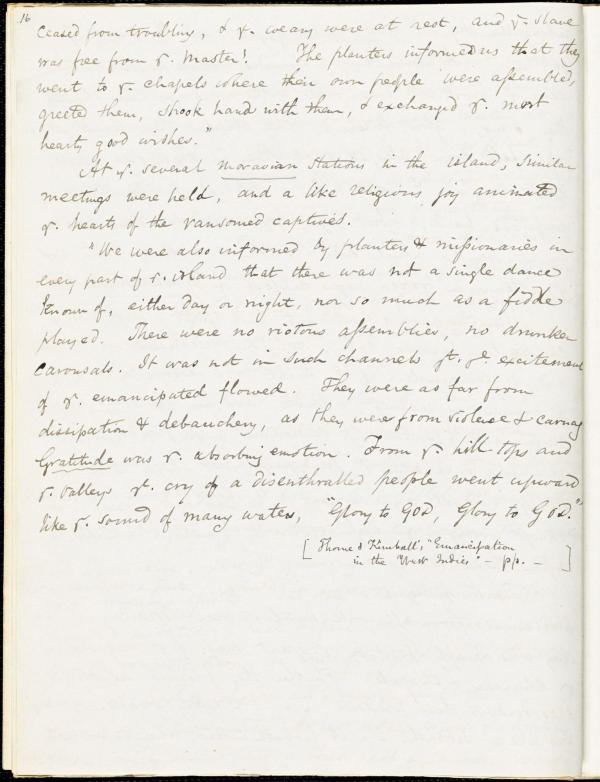 16
ceased from troubling, & y. weary were at rest, and y. slave
was free from y. master! The planters informed us that they
went to y. chapels where their own people were assembled,
greeted them, shook hands with them, & exchanged y. most
hearty good wishes."
At y. several Moravian Stations in the island, similar
meetings were held, and a like religious joy animated
y. hearts of the ransomed captives.
"We were also informed by planters & missionaries in
every part of y. island that there was not a single dance
known of, either day or night, nor so much as a fiddle
played. There were no riotous assemblies, no drunken
carousals. It was not in such channels yt. ye. excitement
of y. emancipated flowed. They were as far from
dissipation & debauchery, as they were from violence & carnag
Gratitude was y. absorbing emotion. From y. hill tops and
y. valleys ye. cry of a disenthralled people went upward
like y. sound of many waters, "Glory to GOD, Glory to GOD."
[Thome & Kimball's "Emancipation
in the West Indies" - pp. - ]